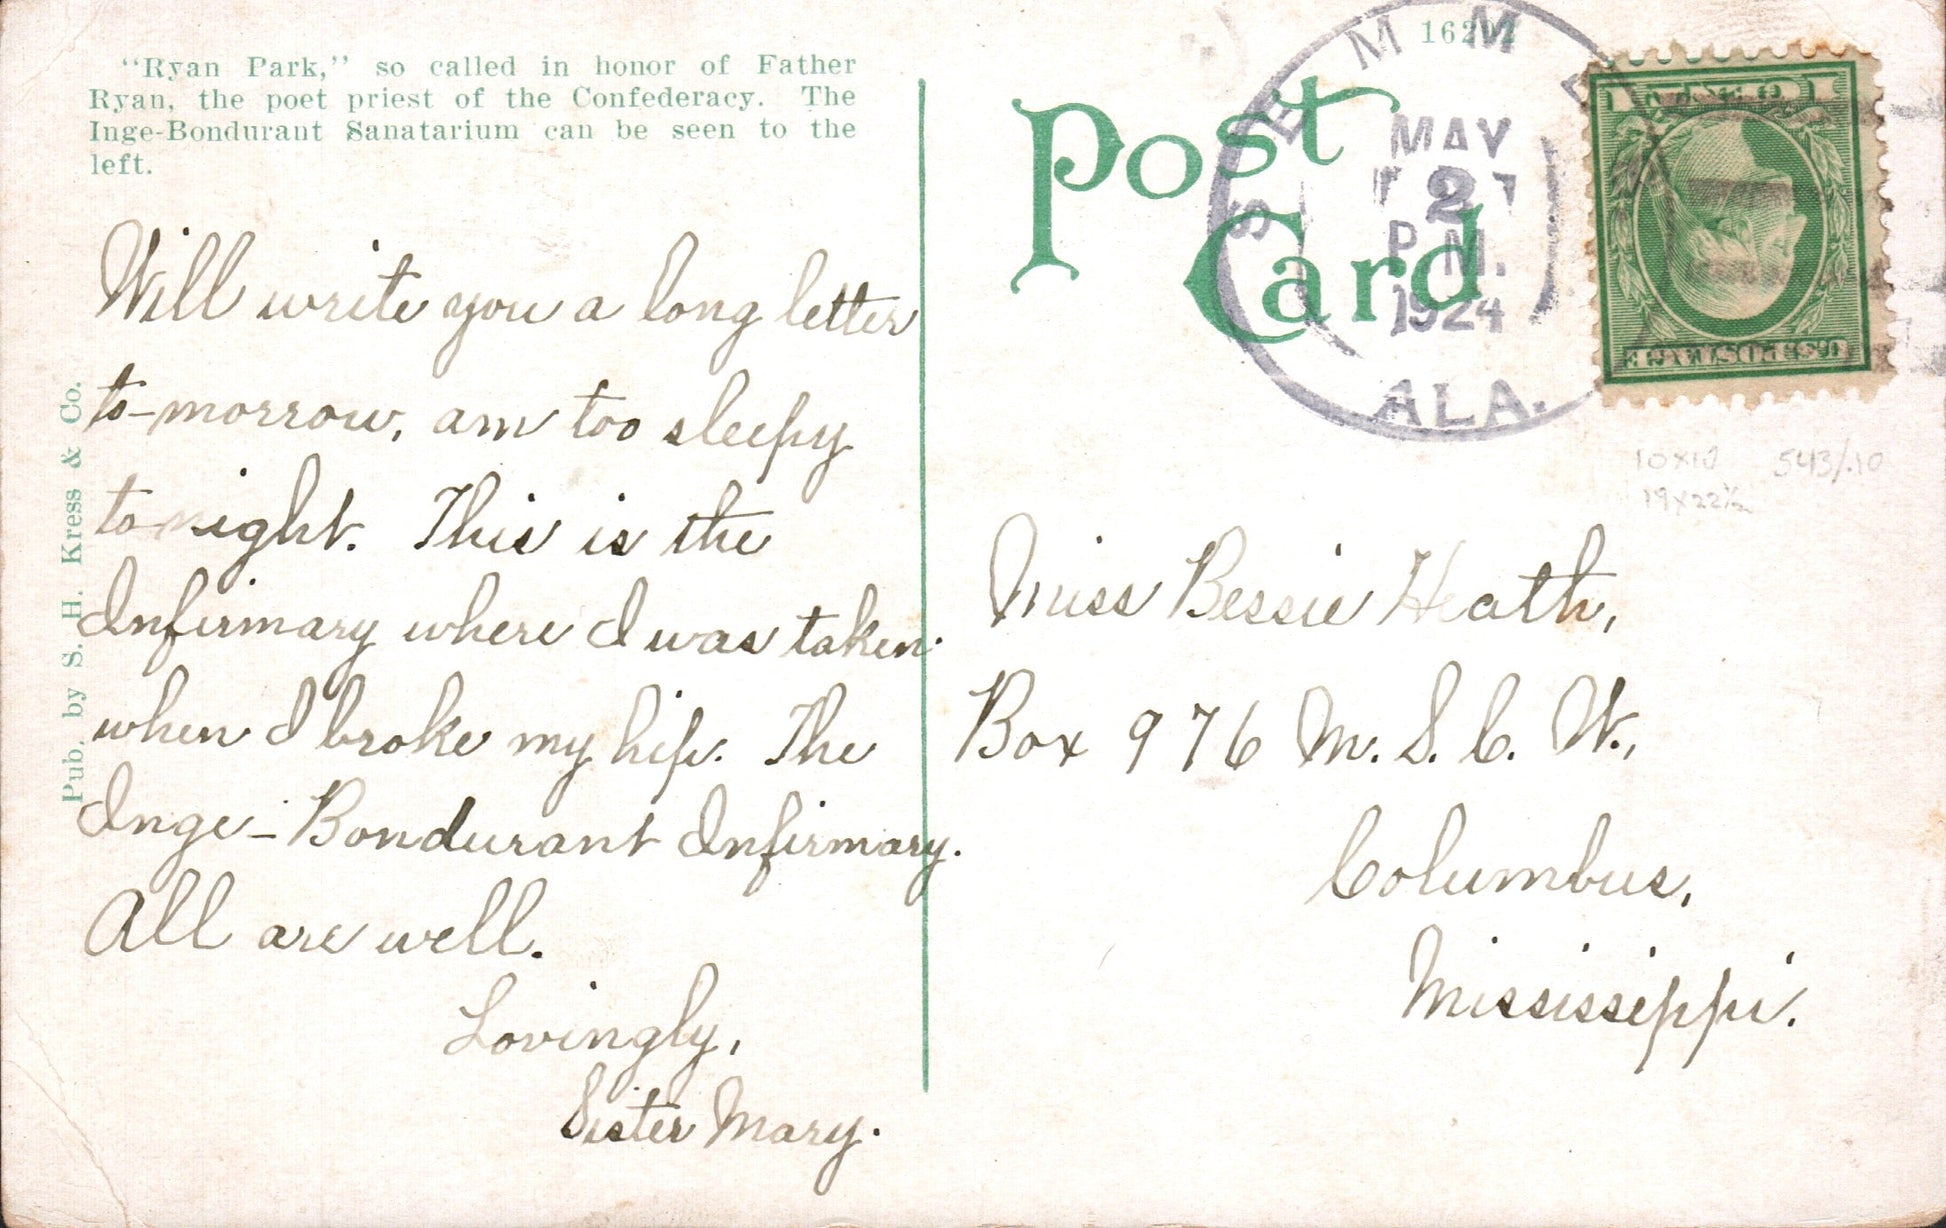 "Ryan Park," so called in honor of Father
Ryan, the poet priest of the Confederacy. The
Inge-Bondurant Sanatarium can be seen to the
left.
Will write you a long letter
to-morrow, am too sleepy
to night. This is the
Infirmary where I was taken
when I broke my hip. The
Inge-Bondurant Infirmary.
All are well.
Lovingly,
Sister Mary.
Pub. by S. H. Kress & Co.
Post
Card
16202
SEMMES
MAY
2
P.M.
1924
ALA.
1 CENT 1
U.S. POSTAGE
10x10 543/.10
19x22½
Miss Bessie Heath,
Box 976 M. S. C. W.,
Columbus,
Mississippi.